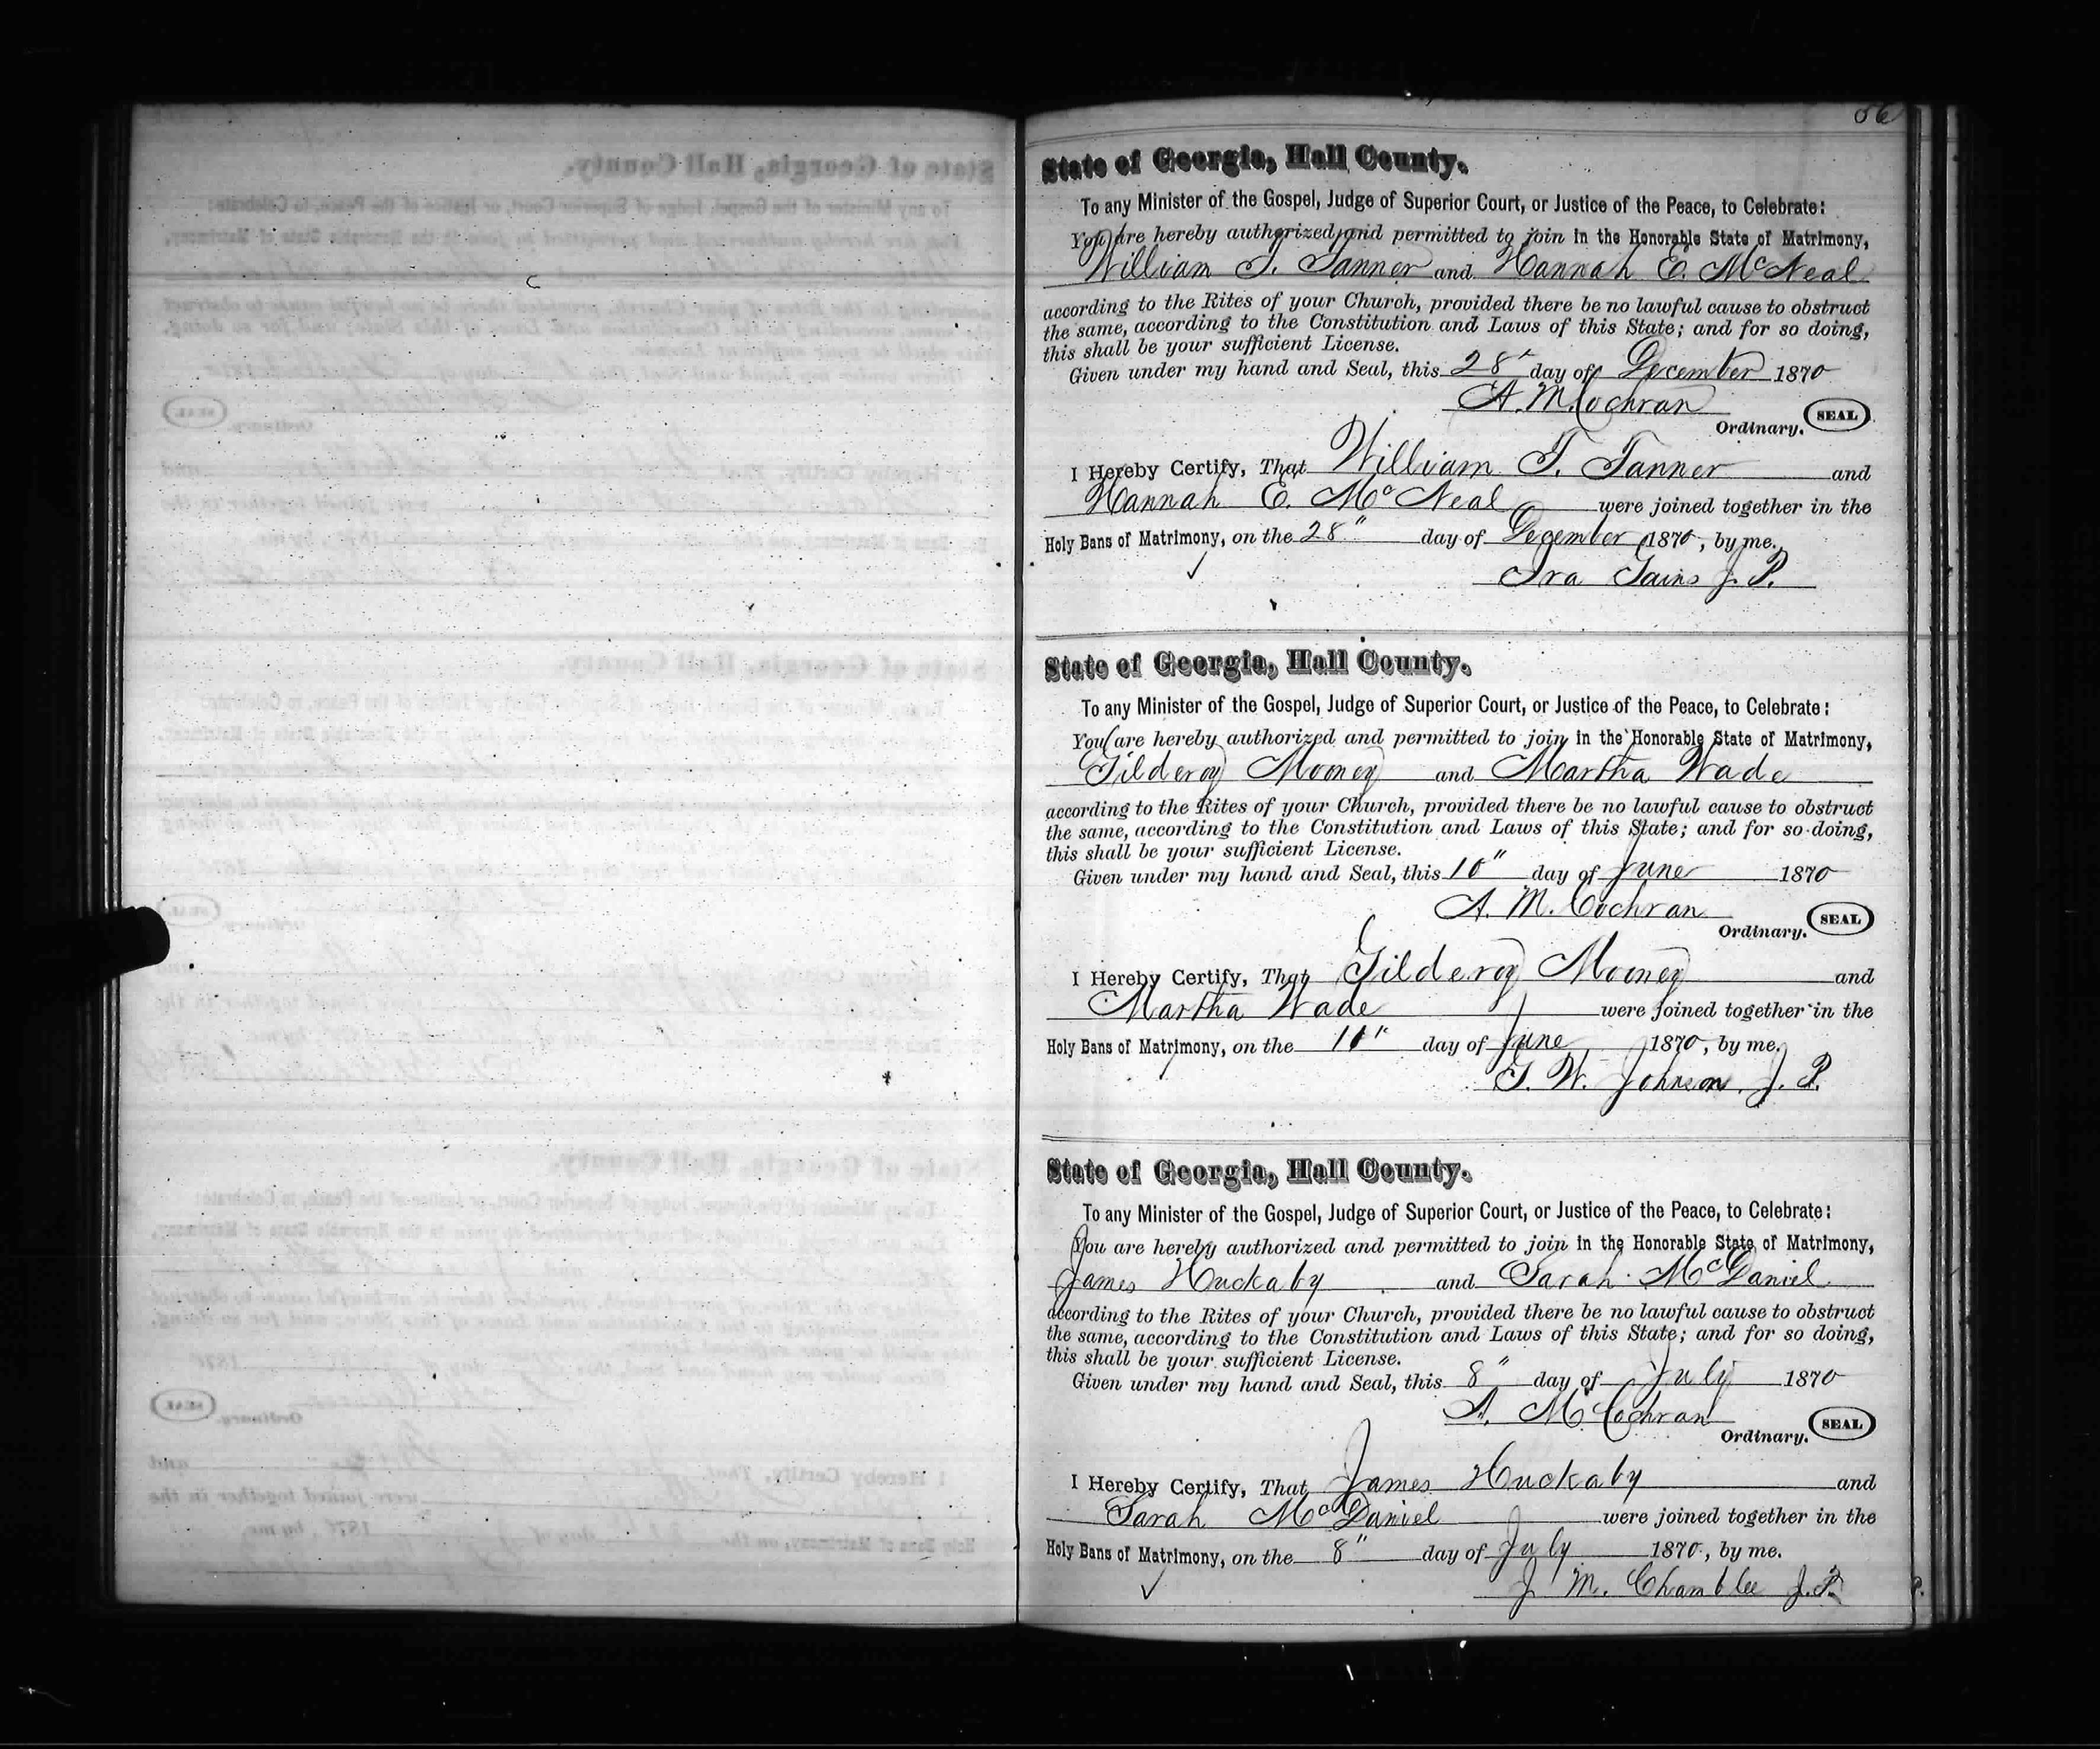 State of Georgia, Hall County.
To any Minister of the Gospel, Judge of Superior Court, or Justice of the Peace, to Celebrate:
You are hereby authorized and permitted to join in the Honorable State of Matrimony,
William T. Tanner and Hannah E. McNeal
according to the Rites of your Church, provided there be no lawful cause to obstruct
the same, according to the Constitution and Laws of this State; and for so doing,
this shall be your sufficient License.
Given under my hand and Seal, this 28" day of December 1870
A. M. Cochran
Ordinary. SEAL
I Hereby Certify, That William T. Tanner and
Hannah E. McNeal were joined together in the
Holy Bans of Matrimony, on the 28" day of December 1870, by me.
Ira J. P.
State of Georgia, Hall County.
To any Minister of the Gospel, Judge of Superior Court, or Justice of the Peace, to Celebrate:
You are hereby authorized and permitted to join in the Honorable State of Matrimony,
Gilderoy Mooney and Martha Wade
according to the Rites of your Church, provided there be no lawful cause to obstruct
the same, according to the Constitution and Laws of this State; and for so doing,
this shall be your sufficient License.
Given under my hand and Seal, this 10" day of June 1870
A. M. Cochran
Ordinary. SEAL
I Hereby Certify, That Gilderoy Mooney and
Martha Wade were joined together in the
Holy Bans of Matrimony, on the day of June 1870, by me.
W. Johnson J. P.
State of Georgia, Hall County.
To any Minister of the Gospel, Judge of Superior Court, or Justice of the Peace, to Celebrate:
You are hereby authorized and permitted to join in the Honorable State of Matrimony,
James Huckaby and Sarah McDaniel
according to the Rites of your Church, provided there be no lawful cause to obstruct
the same, according to the Constitution and Laws of this State; and for so doing,
this shall be your sufficient License.
Given under my hand and Seal, this 8" day of July 1870
A. M. Cochran
Ordinary. SEAL
I Hereby Certify, That James Huckaby and
Sarah McDaniel were joined together in the
Holy Bans of Matrimony, on the 8" day of July 1870, by me.
J M. Chamblee J. P.